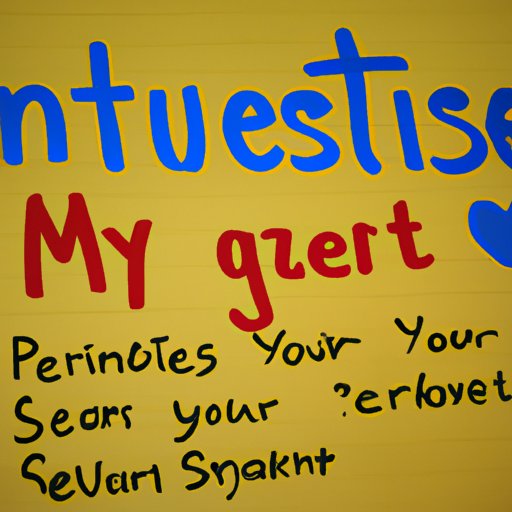 ntuestise
My gzert
Perinotes Your Your
Sears your ?erlovet
Sevarı Snakht